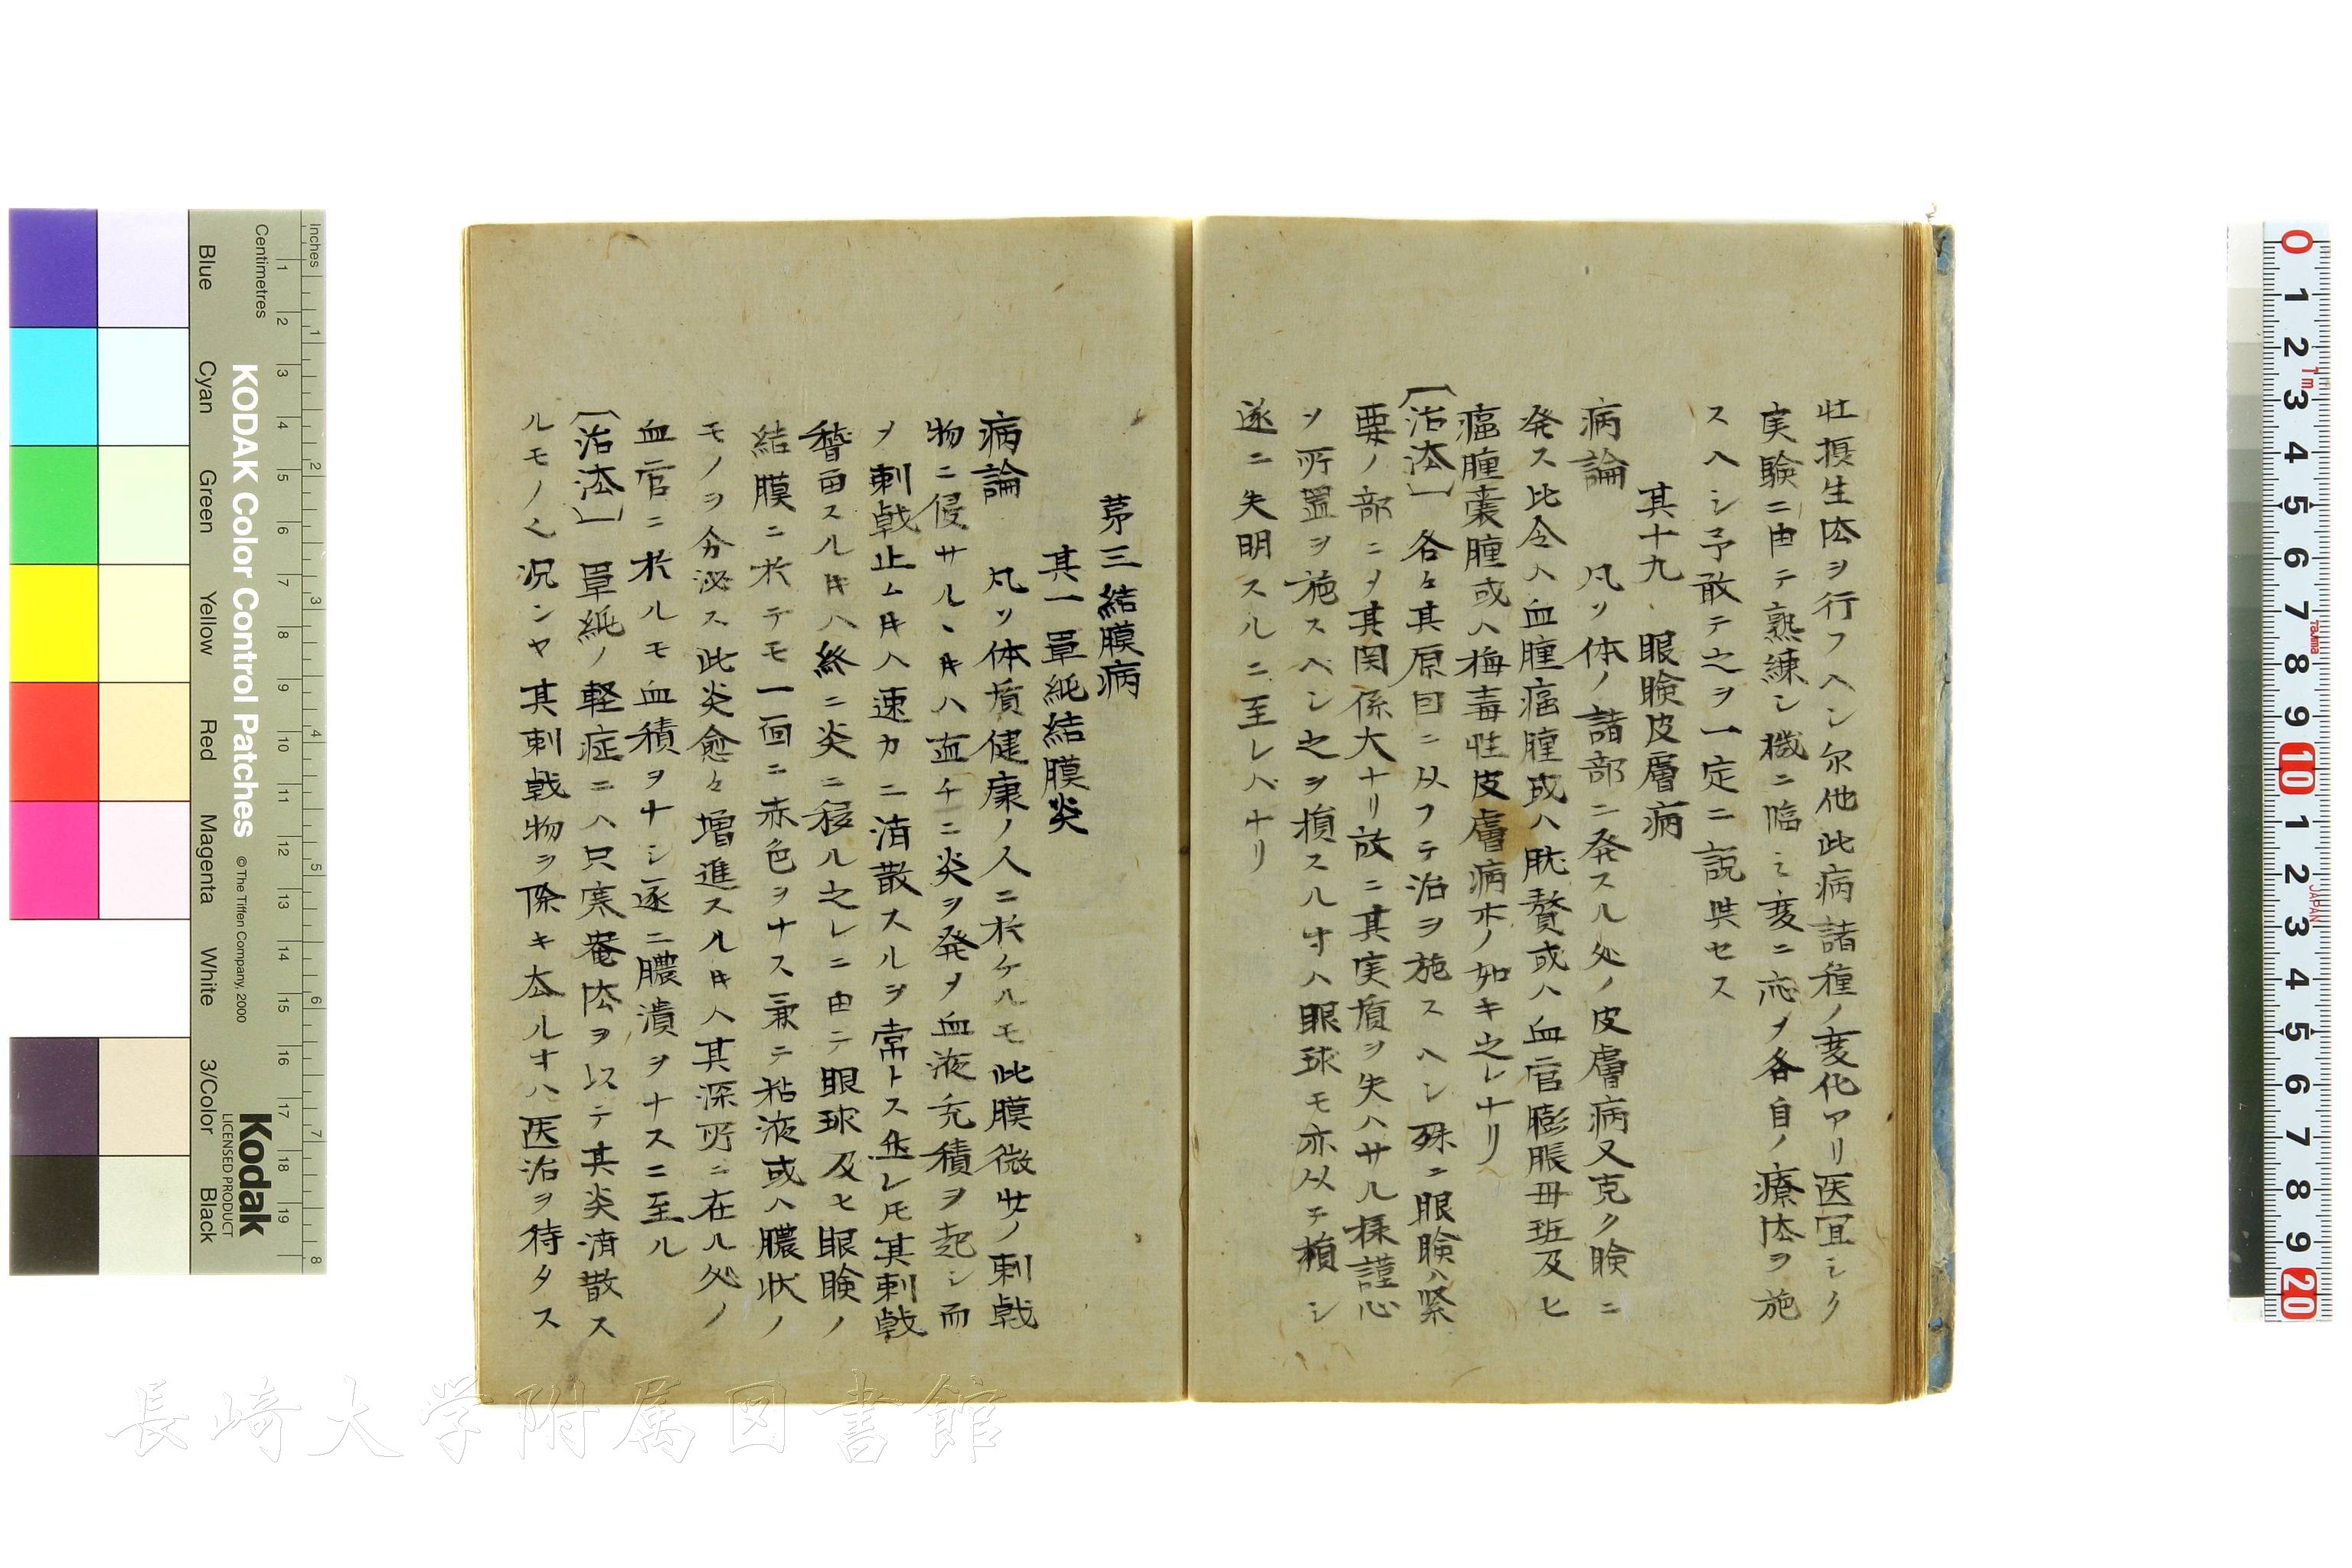 壮損生法ヲ行フヘシ尓他此病諸種ノ変化アリ医宜シク
実験ニ由テ熟練シ機ニ臨ミ変ニ応メ各自ノ療法ヲ施
スヘシ予敢テ之ヲ一定ニ説與セス
其十九 眼瞼皮層病
病論 凡ソ体ノ諸部ニ発スル処ノ皮膚病又克ク瞼ニ
発ス比令ハ血腫瘟腫或ハ肬贅或ハ血官膨脹毋班及ヒ
瘟腫嚢腫或ハ梅毒性皮膚病木ノ如キ之レナリ
〔治法〕 各々其原因ニ从フテ治ヲ施スヘシ殊ニ眼瞼ハ緊
要ノ部ニメ其関係大ナリ故ニ其実質ヲ失ハサル様謹心
ヲ所置ヲ施スヘシ之ヲ損スルオハ眼球モ亦从テ損シ
遂ニ失明スルニ至レバナリ
第三結膜病
其一 単純結膜炎
病論 凡ソ体質健康ノ人ニ於ケルモ此膜微サノ刺戟
物ニ侵サルヽキハ直チニ炎ヲ発メ血液充積ヲ起シ而
ヲ刺戟止ムキハ速カニ消散スルヲ常トス然レ𪜈其刺戟
稽留スルキハ終ニ炎ニ移ル之レニ由テ眼球及ヒ眼瞼ノ
結膜ニ於テモ一面ニ赤色ヲナス兼テ粘液或ハ膿状ノ
モノヲ分泌ス此炎愈々増進スルキハ其深所ニ在ル処ノ
血官ニ於ルモ血積ヲナシ遂ニ膿潰ヲナスニ至ル
〔治法〕 単純ノ軽症ニハ只寒罨法ヲ以テ其炎消散ス
ルモノ也況ンヤ其刺戟物ヲ除キ去ルオハ医治ヲ待タス
KODAK Color Control Patches
© The Tiffen Company, 2000
Kodak
LICENSED PRODUCT
Inches
Centimetres
Blue
Cyan
Green
Yellow
Red
Magenta
White
3/Color
Black
長崎大学附属図書館